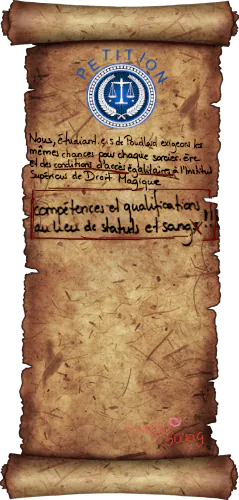 PETITION
Nous, Étudiant.e.s de Poudlard exigeons les
mêmes chances pour chaque sorcier.ère
et des conditions d'accès égalitaires à l'Institut
Supérieur de Droit Magique
compétences et qualifications
au lieu de statuts et sang!!!